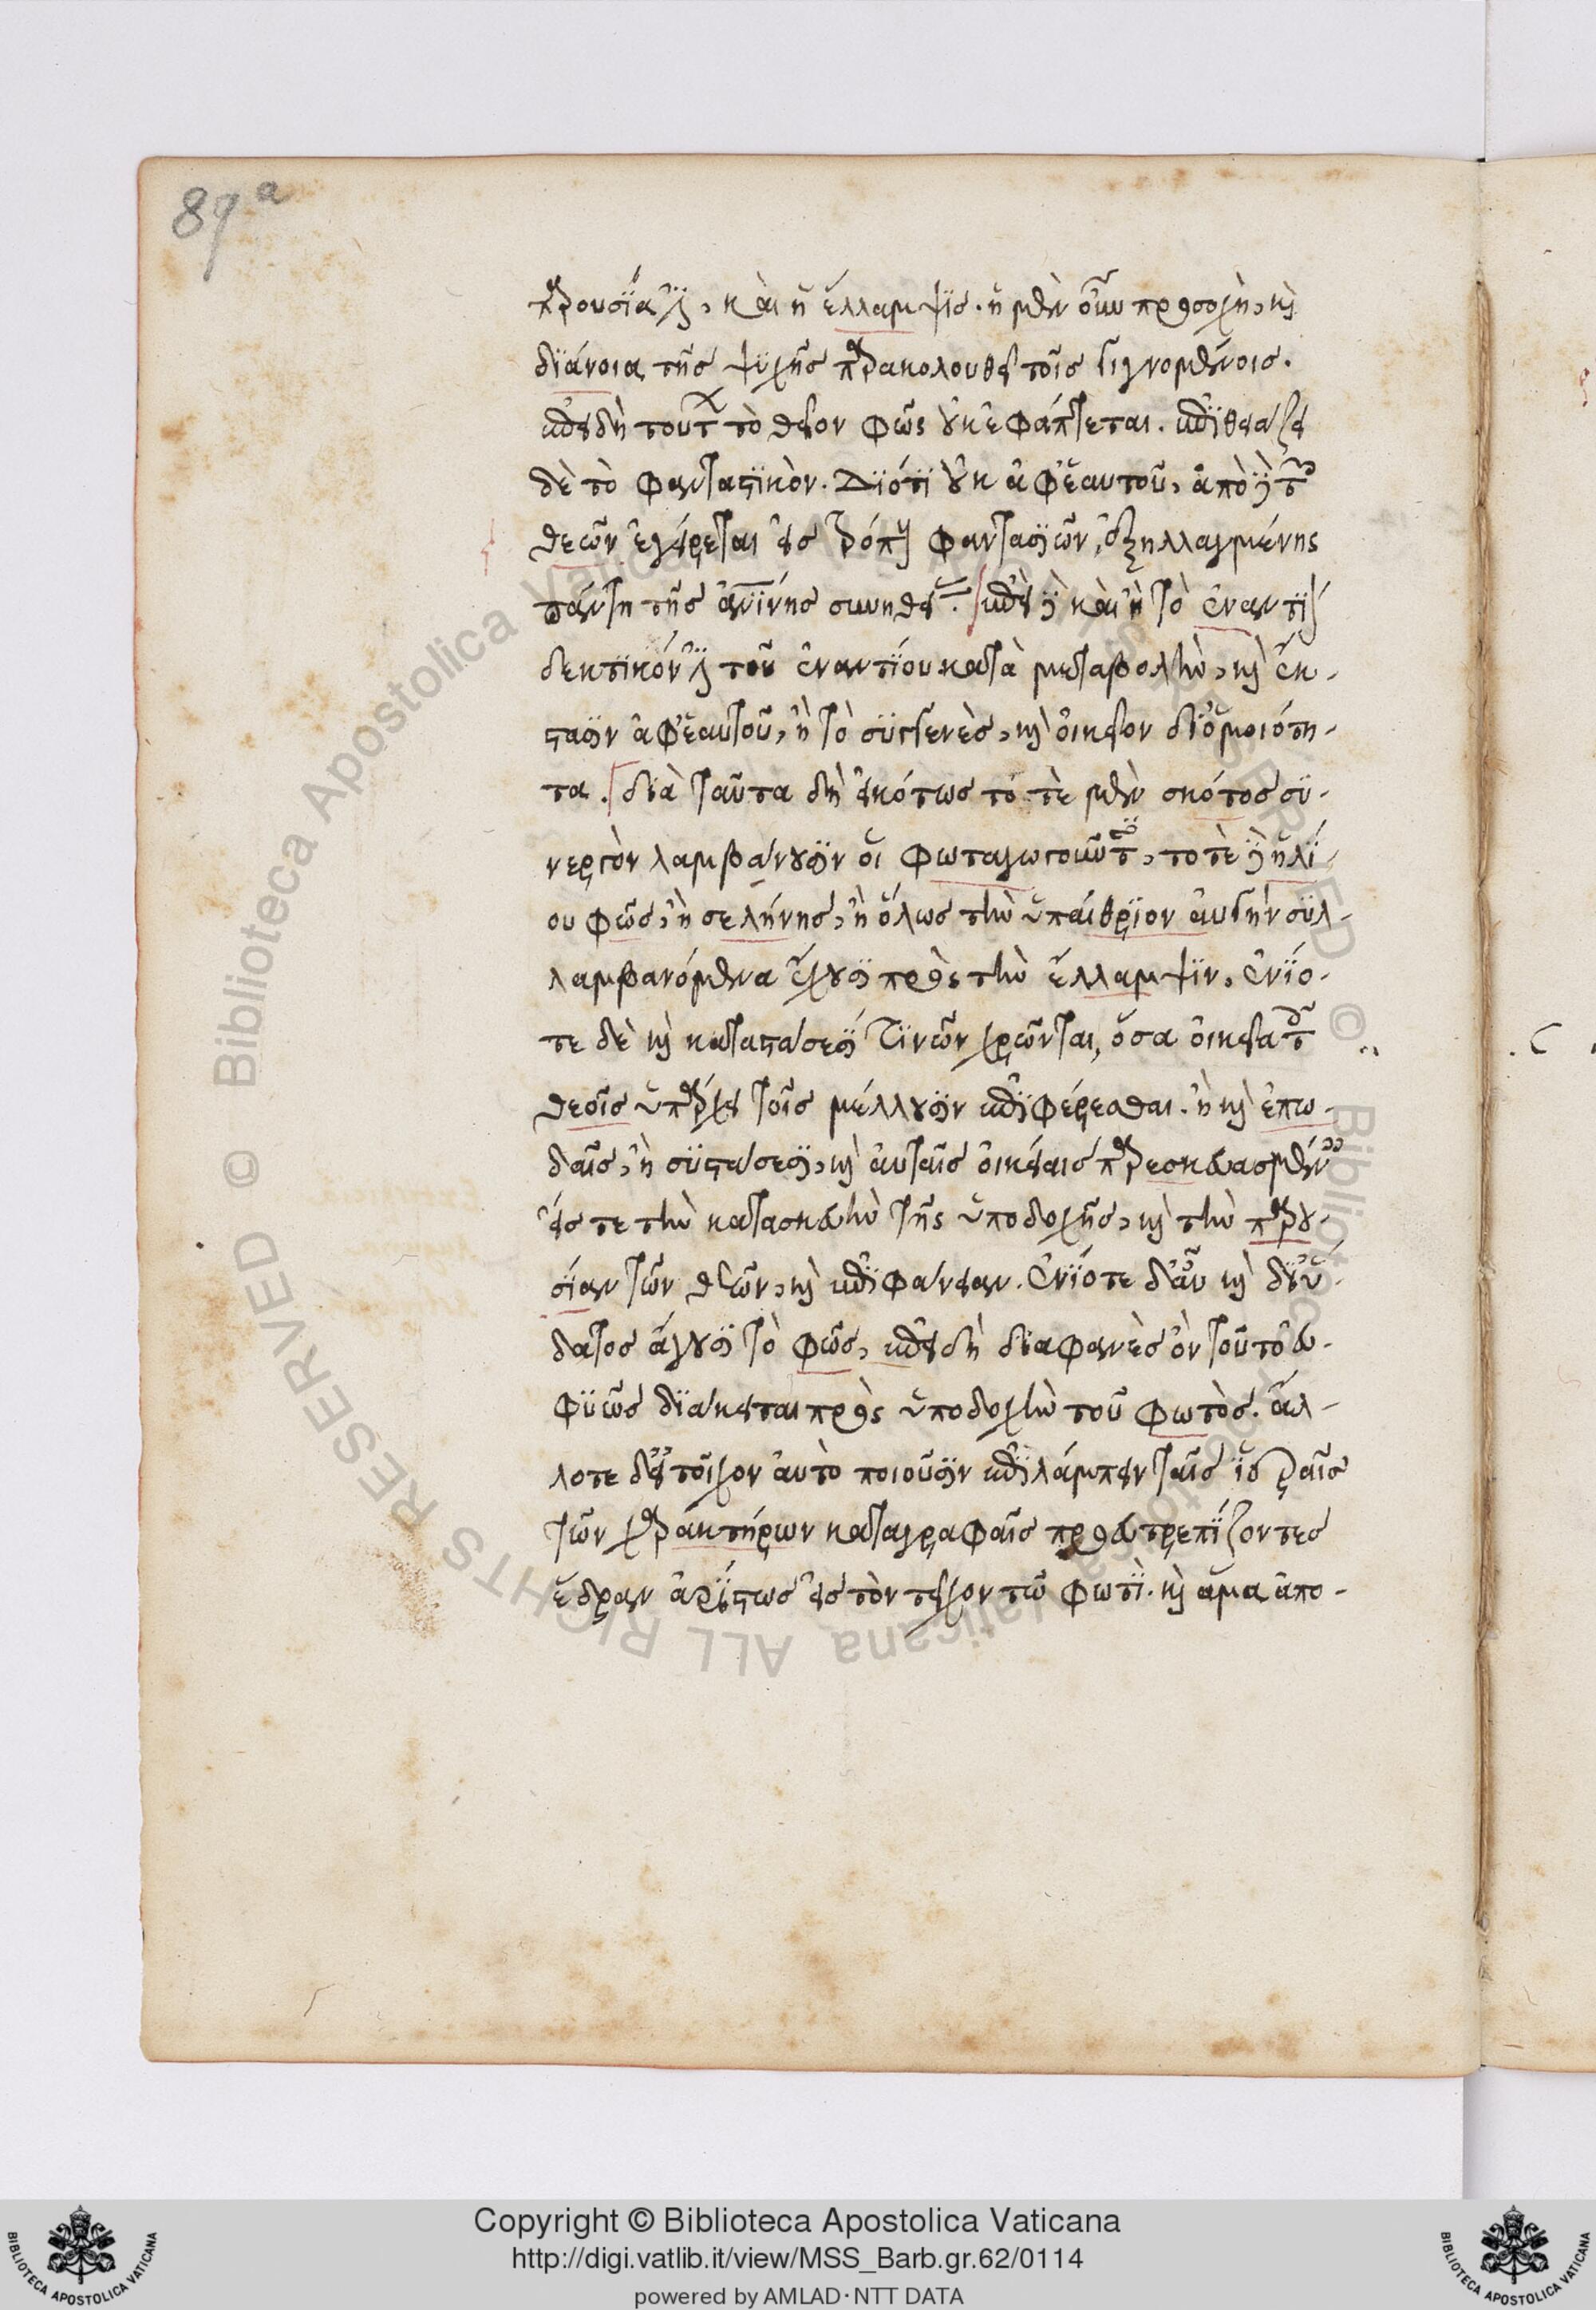 89a
παρουσία ἐστὶ, καὶ ἡ ἔλλαμψις. ἡ μὲν οὖν προσοχὴ, καὶ
διάνοια τῆς ψυχῆς παρακολουθεῖ τοῖς γιγνομένοις.
ἐπειδὴ τούτων τὸ θεῖον φῶς οὐκ ἐφάπτεται. ἐπιθειάζει
δὲ τὸ φανταστικὸν. Διότι οὐκ ἀφ' ἑαυτοῦ, ἀπὸ δὲ τῶν
θεῶν ἐγείρεται εἰς τρόπους φαντασιῶν, ἐξηλλαγμένης
πάντη τῆς ἀνθρωπίνης συνηθείας. ἐπεὶ δὲ καὶ ἢ τὸ ἐναντίον
δεκτικόν ἐστι τοῦ ἐναντίου κατὰ μεταβολὴν, καὶ ἔκ-
στασιν ἀφ' ἑαυτοῦ, ἢ τὸ συγγενὲς, καὶ οἰκεῖον δι' ὁμοιότη-
τα. διὰ ταῦτα δὴ εἰκότως τό τε μὲν σκότος συ-
νεργὸν λαμβάνουσιν οἱ φωταγωγοῦντες, τοτὲ δὲ ἡλί-
ου φῶς, ἢ σελήνης, ἢ ὅλως τὴν ὑπαίθριον αὐγήν συλ-
λαμβανόμενα ἔχουσι πρὸς τὴν ἔλλαμψιν. ἐνίο-
τε δὲ καὶ καταστάσεσί τινῶν χρῶνται, ὅσα οἰκεῖα τοῖς
θεοῖς ὑπάρχει τοῖς μέλλουσιν ἐπιφέρεσθαι. ἢ καὶ ἐπω-
δαῖς, ἢ συστάσεσι, καὶ αὐταῖς οἰκείαις παρεσκευασμέναις
εἴς τε τὴν κατασκευὴν τῆς ὑποδοχῆς, καὶ τὴν παρου-
σίαν τῶν θεῶν, καὶ ἐπιφάνειαν. ἐνίοτε δ' αὖ καὶ δι' ὕ-
δατος ἄγουσι τὸ φῶς, ἐπειδὴ διαφανὲς ὂν τοῦτο εὐ-
φυῶς διάκειται πρὸς ὑποδοχὴν τοῦ φωτὸς. ἄλ-
λοτε δ' εἰς τοῖχον αὐτὸ ποιοῦσιν ἐπιλάμπειν ταῖς ἱεραῖς
τῶν χαρακτήρων καταγραφαῖς προευτρεπίζοντες
ἕδραν ἀρίστως εἰς τὸν τεῖχον τῷ φωτὶ. καὶ ἅμα ἀπο-
Copyright © Biblioteca Apostolica Vaticana
http://digi.vatlib.it/view/MSS_Barb.gr.62/0114
powered by AMLAD·NTT DATA